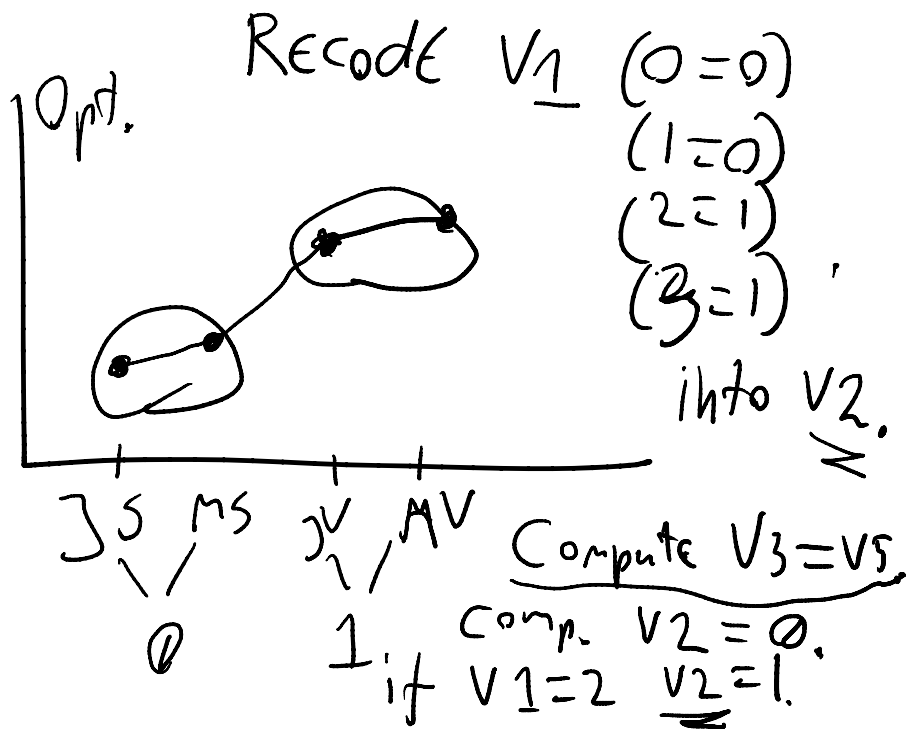 Recode V1 (0=0)
Opt.
(1=0)
(2=1)
(3=1)
into V2.
JS MS JV MV
Compute V3=V5.
0 1
comp. V2=0.
if V1=2 V2=1.